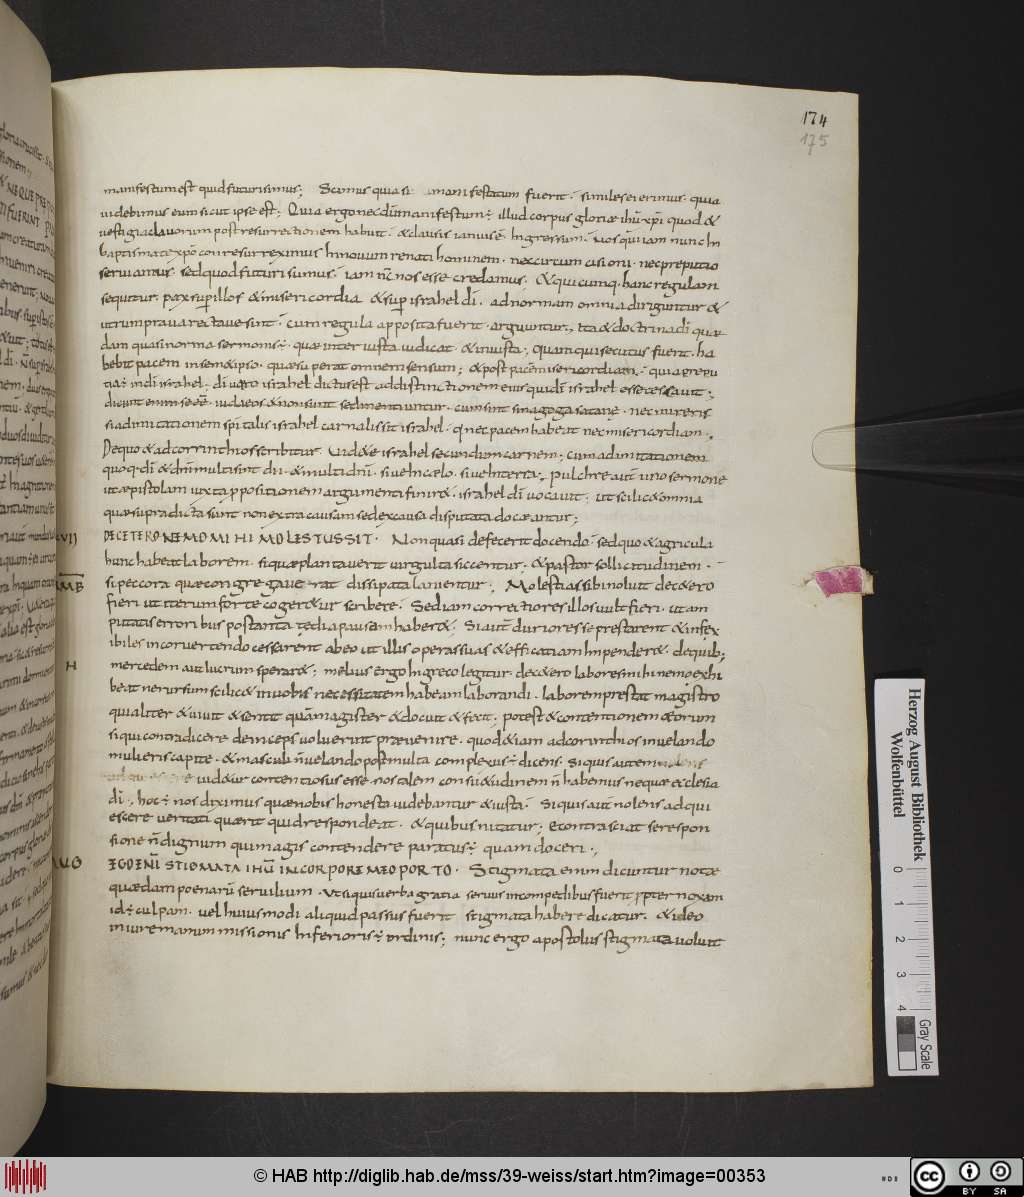 174
175
manifestum est quid futuri simus; Scimus quia si manifestatum fuerit · similes ei erimus · quia
videbimus eum sicut ipse est; Quia ergo necdū manifestum ÷ illud corpus gloriæ ihū xp̄i quod &
vestigia clavorum post resurrectionem habuit · & clausis ianuis ē Ingressum · Nos quā iam nunc In
baptismate xp̄o conresurreximus In novum renati hominem · nec circumcisioni · nec preputio
serviamus · sed quod futuri sumus · iam nc̄ nos esse credamus · & quicunq · hanc regulam
sequitur pax sup illos & misericordia & sup israhel dī · ad normam omnia diriguntur &
utrum prava rectave sint · cum regula apposita fuerit · arguuntur, Ita & doctrina dī quæ
dam quasi norma sermonis ÷ quæ inter iusta iudicat · & iniusta; Quam qui secutus fuerit · ha
bebit pacem in sem&ipso · quæ superat omnem sensum; & post pacē misericordiam ·
israhel dī · dī vero israhel dictus est ad distinctionem eius qui dī israhel esse cessavit;
dicunt enim se eē · iudæos & non sunt sed mentiuntur · cum sint sinagoga satanæ · nec mireris
si ad imitationem spitalis israhel carnalis sit israhel · q nec pacem habeat nec misericordiam ·,
De quo & ad corrinthios scribitur · Vid&e israhel secundum carnem; cum ad imitationem
quoq dī & dn̄i multi sint dii · & multi dn̄i · sive In cælo · sive In terra; Pulchre aut uno sermone
ut æpistolam iuxta ppositionem argumenti finir& · israhel dī vocavit · ut scilic& omnia
quæ supra dicta sunt non extra causam sed ex causa disputata docæantur;
DE CETERO NEMO MIHI MOLESTUS SIT · Non quasi defecerit docendo · sed quo & agricula
hunc habeat laborem · si quæ plantaverit virgulta siccentur · & pastor sollicitudinem ·
si peccora quæ congregaverat dissipata lanientur · Molestias sibi noluit de c&ero
fieri ut iterum forte coger&ur scribere · Sed iam correctiores illos vult fieri · ut am
putatis erroribus postanta tedia pausam haber&; Si aut duriores se prestarent & inflex
ibiles in convertendo cessarent abeo ut illis operas suas & efficatiam Impender& · de quib;
mercedem aut lucrum sperar&; melius ergo In greco legitur · de c&ero labores mihi nemo exhi
beat ne rursum scilic& in vobis necessitatem habeam laborandi · laborem prestat magistro
qui aliter & vivit & sentit quā magister & docuit & fecit; potest & contentionem &orum
si qui contradicere deinceps voluerint prævenire · quod &iam ad corrinthios in velando
mulieris capite · & masculi n̄ velando post multa complexus ÷ dicens · Si quis autem
vid&ur contentiosus esse · nos talem consu&udinem n̄ habemus neque æclesia
dī; hoc ÷ nos diximus quæ nobis honesta videbantur & iusta · Si quis aut nolens adqui
escere veritati quærit quid respondeat · & quibus nitatur; & contra sciat se respon
sione n̄ dignum qui magis contendere paratus ÷ quam doceri ·,
EGO ENĪ STIGMATA IHŪ IN CORPORE MEO PORTO · Stigmata enim dicuntur notæ
quædam poenarū servilium · Ut si quis verbi gratia servus in compedibus fuerit ppter noxam
id ÷ culpam · vel huiusmodi aliquid passus fuerit stigmata habere dicatur · & ideo
in iure manummissionis Inferioris ÷ ordinis; nunc ergo apostolus stigmata voluit
VIJ
AMB
H
AUG
Herzog August Bibliothek
Wolfenbüttel
0 1 2 3 4
Gray Scale
© HAB http://diglib.hab.de/mss/39-weiss/start.htm?image=00353
cc BY SA